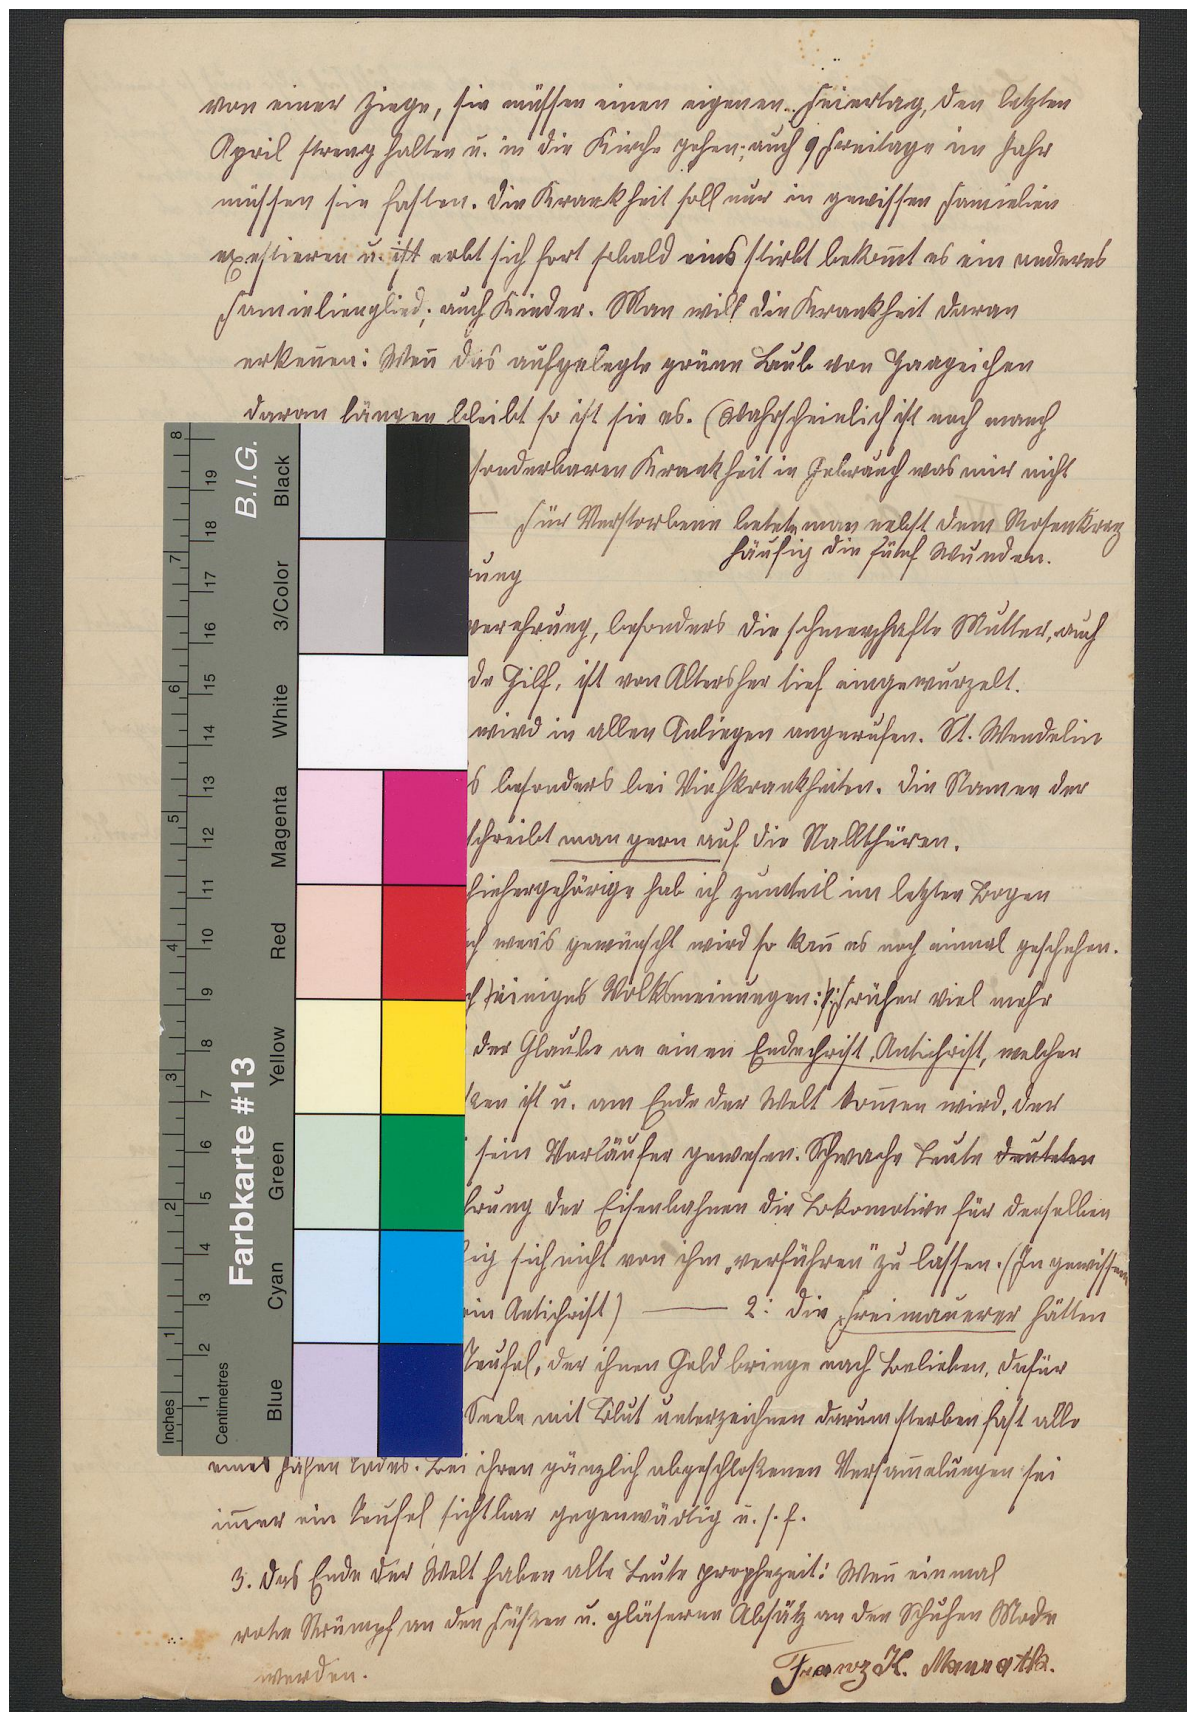 von einer Ziege, sie müssen einen eigenen Feiertag, den letzten
April streng halten u. in die Kirche gehen; auch 9 Freitage im Jahr
müssen sie fasten. Die Krankheit soll nur in gewissen Famielien
exestieren u. ist erbt sich fort sobald eins stirbt bekom̄t es ein anderes
Famielienglied; auch Kinder. Man will die Krankheit daran
erken̄en: Wen̄ das aufgelegte grüne Laub von Hageichen
daran hängen bleibt so ist sie es. (Wahrscheinlich ist noch manch
sonderbaren Krankheit in Gebrauch was mir nicht
— Für Verstorbene betet man nebst dem Rosenkranz
häufig die fünf Wunden.
rung
verehrung, besonders die schmerzhafte Mutter, auch
de Hilf, ist von Altersher tief eingewurzelt.
wird in allen Anliegen angerufen. St. Wendelin
s besonders bei Viehkrankheiten. Die Namen der
schreibt man gern auf die Stallthüren.
hiehergehörige hab ich zumteil im letzten Bogen
ch wen̄s gewünscht wird so kan̄ es noch einmal geschehen.
ch einiges Volksmeinungen: 1: Früher viel mehr
der Glaube an einen Endechrist, Antichrist, welcher
ken ist u. am Ende der Welt kom̄en wird, der
sein Vorläufer gewesen. Schwache Leute deuteten
hrung der Eisenbahnen die Lokomotive für denselben
ig sich nicht von ihm „verführen" zu lassen. (In gewissem
ein Antichrist) — 2: die Freimauerer hätten
Teufel, der ihnen Geld bringe nach Belieben, dafür
Seele mit Blut unterzeichnen darum sterben fast alle
eines jähen Todes. Bei ihren gänzlich abgeschloßenen Versam̄elungen sei
im̄er ein Teufel sichtbar gegenwärtig u. s. f.
3. Das Ende der Welt haben alte Leute prophezeit: Wen̄ einmal
rote Strümpf an den Füßen u. gläserne Absätz an den Schuhen Mode
werden.
Franz K.
Inches
1
2
3
4
5
6
7
8
Centimetres
1
2
3
4
5
6
7
8
9
10
11
12
13
14
15
16
17
18
19
Farbkarte #13
B.I.G.
Blue
Cyan
Green
Yellow
Red
Magenta
White
3/Color
Black